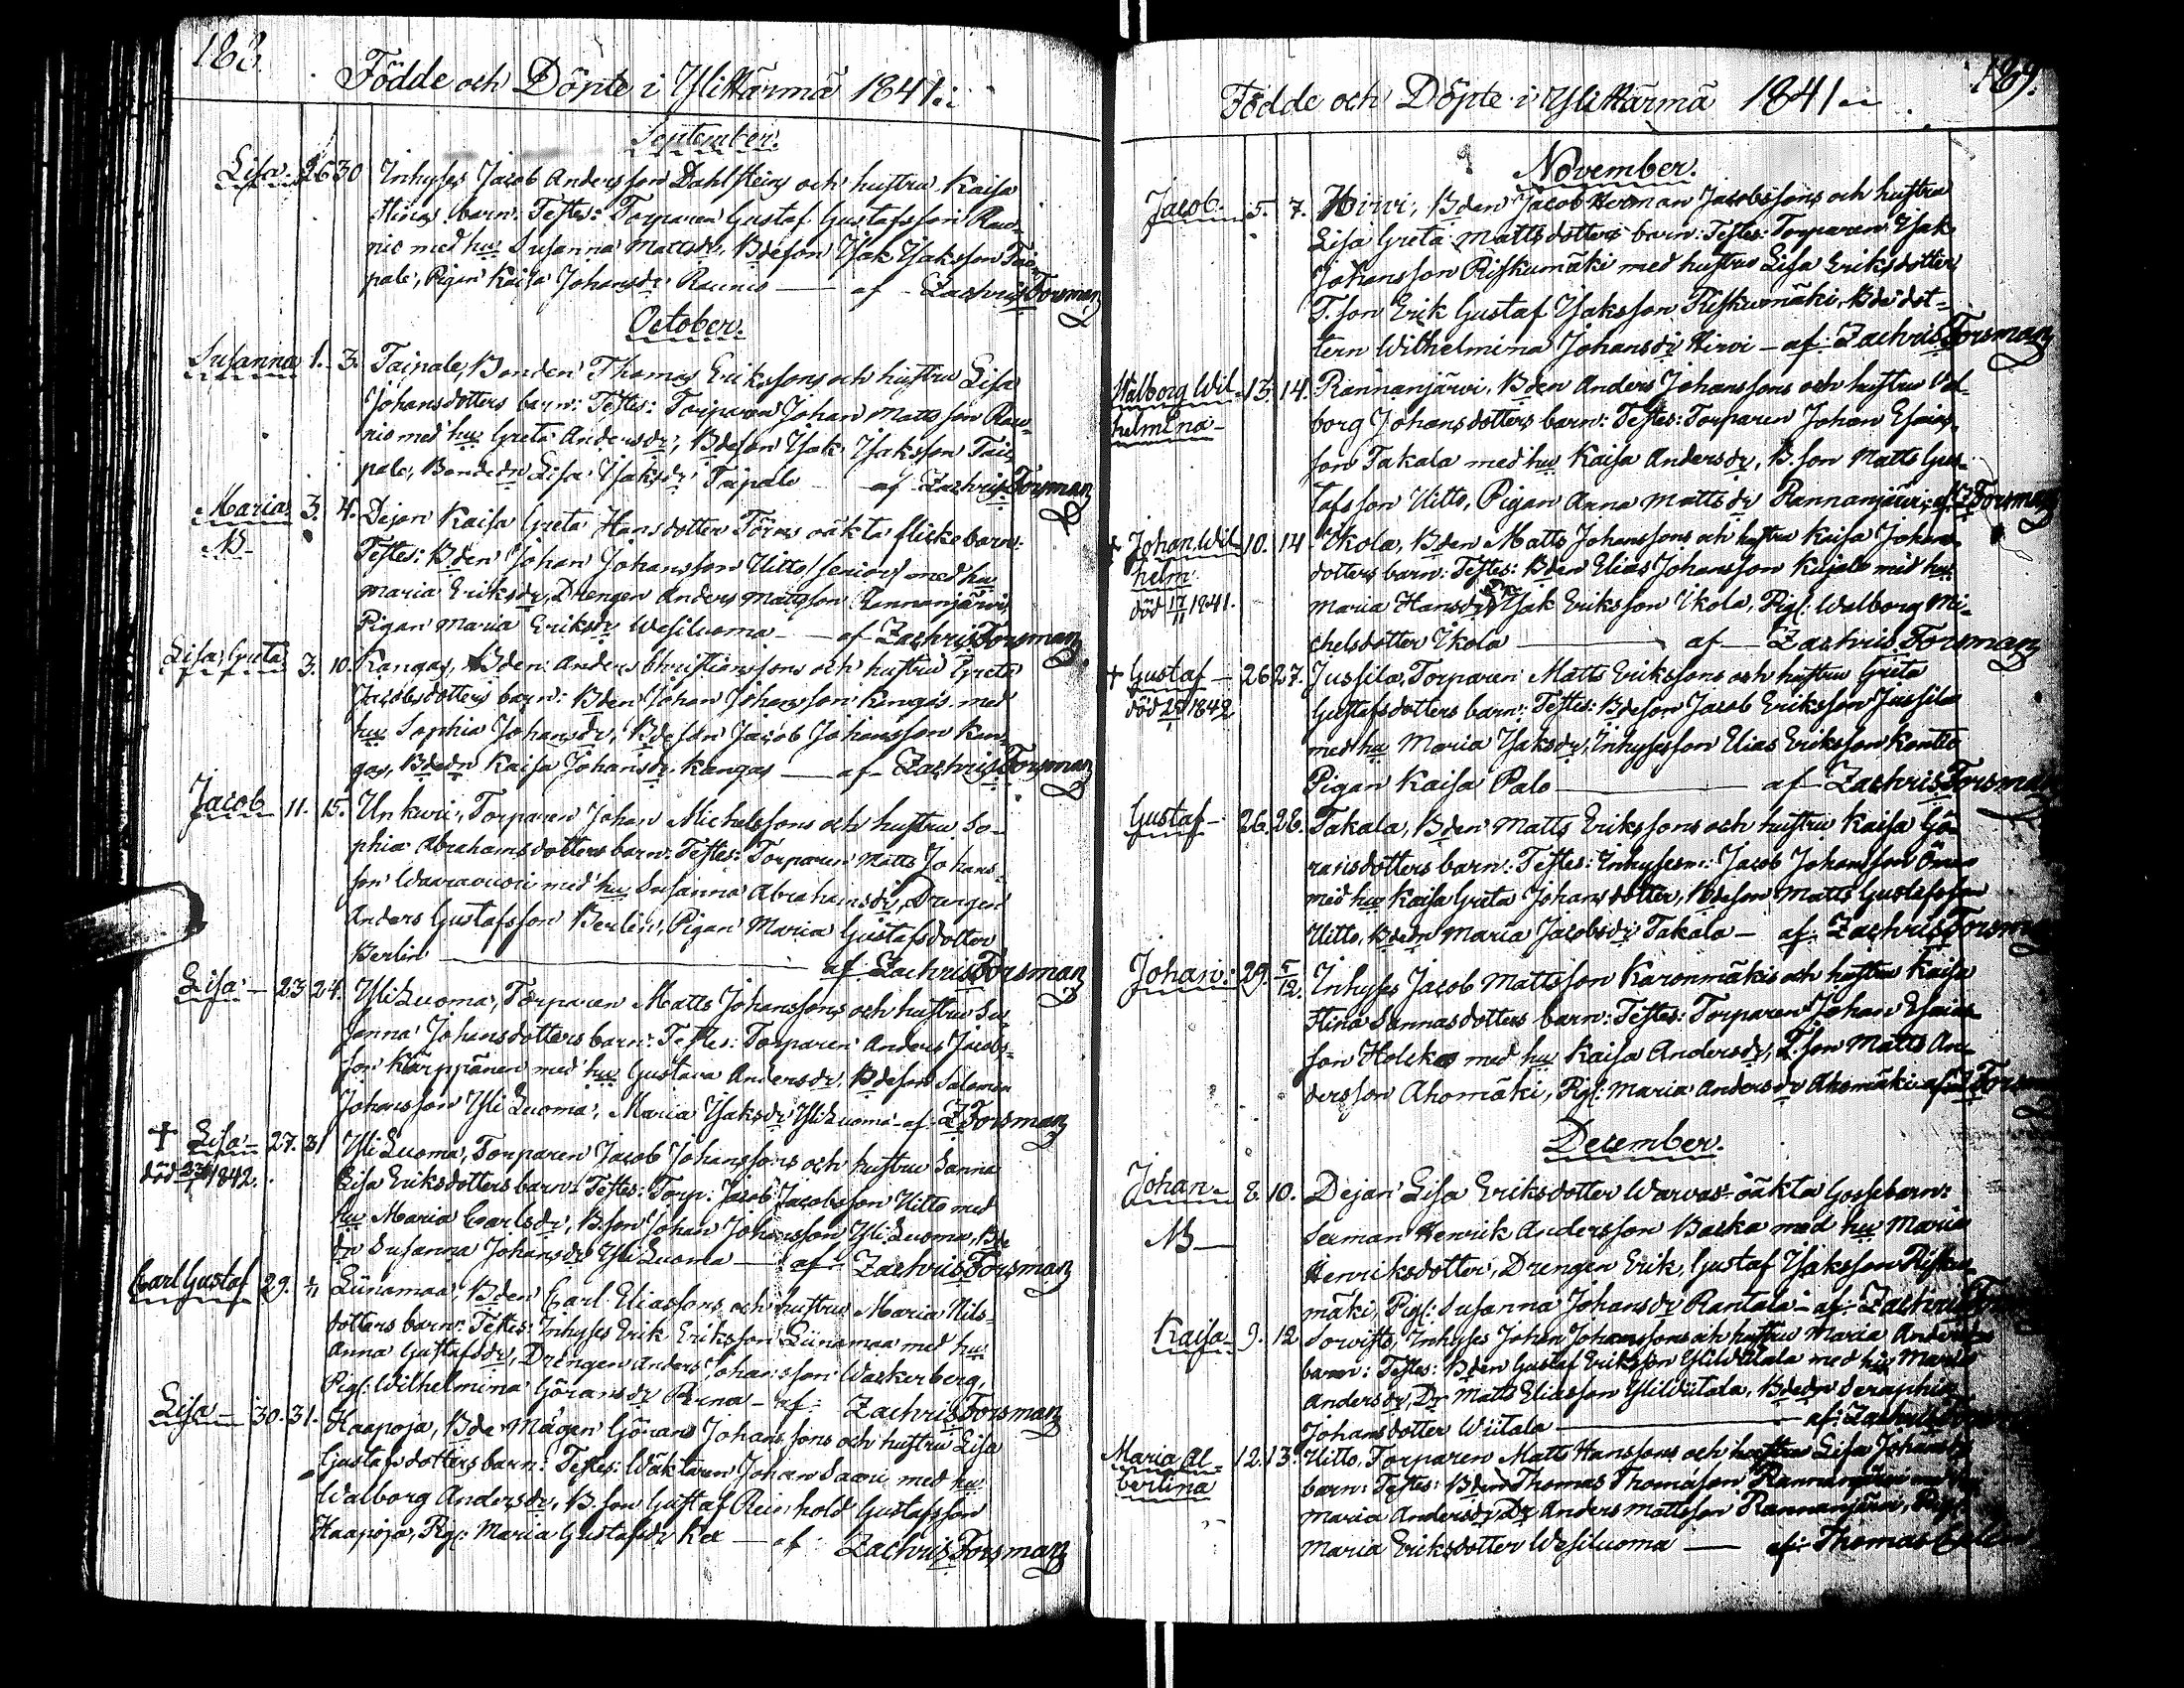 188.
Födde och Döpte i Ylihärmä 1841.
September.
Lisa. 26 30 Inhyses Jacob Andersson Dahlstens och hustru Kaisa
Stinas barn: Testes: Torparen Gustaf Gustafsson Rau-
nio med hu Susanna Mattsdr, Bdeson Isak Isaksson Tai-
pale, Pigan Kaisa Johansdr Raunio — af Zachris Forsman
October.
Susanna 1. 3. Taipale, Bonden Thomas Erikssons och hustru Lisa
Johansdotters barn: Testes: Torparen Johan Mattsson Rau-
nio med hu Greta Andersdr, Bdeson Isak Isaksson Tai-
pale, Bondedr Lisa Isaksdr Taipale af Zachris Forsman
Maria 3. 4. Dejan Kaisa Greta Hansdotter Törns oäkta flickebarn:
NB Testes: Bden Johan Johansson Uitto senior med hu
Maria Eriksdr, Drengen Anders Mattsson Rannanjärvi
Pigan Maria Eriksdr Wesiluoma — af Zachris Forsman
Lisa Greta 3. 10. Kangas, Bden Anders Christianssons och hustru Greta
Jacobsdotters barn: Bden Johan Johansson Kangas med
hu Sophia Johansdr, Bdeson Jacob Johansson Kan-
gas, Bdedr Kaisa Johansdr Kangas — af Zachris Forsman
Jacob 11. 15. Unkuri, Torparen Johan Michelssons och hustru So-
phia Abrahamsdotters barn: Testes: Torparen Matts Johans-
son Waaravuori med hu Susanna Abrahamsdr, Drengen
Anders Gustafsson Berlin, Pigan Maria Gustafsdotter
Berlin — af Zachris Forsman
Lisa — 23 24. Yli Luoma, Torparen Matts Johanssons och hustru Su-
sanna Johansdotters barn: Testes: Torparen Anders Jacobs-
son Kärppänen med hu Gustava Andersdr, Bdeson Salomon
Johansson Yli Luoma, Maria Isaksdr Yli Luoma af Z Forsman
+ Lisa — 27. 31 Yli Luoma, Torparen Jacob Johanssons och hustru Sanna
död 1842. Lisa Eriksdotters barn: Testes: Torp: Jacob Jacobsson Uitto med
hu Maria Carlsdr, B.son Johan Johansson Yli Luoma, Bde
dr Susanna Johansdr Yli Luoma — af Zachris Forsman
Carl Gustaf 29. Liinamaa, Bden Carl Eliassons och hustru Maria Nils-
dotters barn: Testes: Inhyses Erik Eriksson Liinamaa med hu
Anna Gustafsdr, Drengen Anders Johansson Wackerberg,
Pig: Wilhelmina Göransdr — af Zachris Forsman
Lisa — 30. 31. Haapoja, Bde Mågen Görans Johanssons och hustru Lisa
Gustafsdotters barn: Testes: Wäktaren Johan Saari med hu
Walborg Andersdr, B.son Gustaf Reinhold Gustafsson
Haapoja, Pig: Maria Gustafsdr — af Zachris Forsman
189.
Födde och Döpte i Ylihärmä 1841
November.
Jacob. 5. 7. Hirvi, Bden Jacob Herman Jacobssons och hustru
Lisa Greta Mattsdotters barn: Testes: Torparen Isak
Johansson Riskumäki med hustru Lisa Eriksdotter
T.son Erik Gustaf Isaksson Riskumäki, Bde dot-
tern Wilhelmina Johansdr Hirvi — af Zachris Forsman
Walborg Wil- 13. 14. Rannanjärvi, Bden Anders Johanssons och hustru Val-
helmina — borg Johansdotters barn: Testes: Torparen Johan Esaias-
son Takala med hu Kaisa Andersdr, B.son Matts Gus-
tafsson Uitto, Pigan Anna Mattsdr Rannanjärvi, af Z Forsman
+ Johan Wil- 10. 14 Ikola, Bden Matts Johanssons och hustru Kaisa Johans-
helm dotters barn: Testes: Bden Elias Johansson Kujala med hu
död 17/11 1841. Maria Hansdr, Dr Isak Eriksson Ikola, Pig: Walborg Mi-
chelsdotter Ikola — af — Zachris Forsman
+ Gustaf — 26 27. Jussila, Torparen Matts Erikssons och hustru Greta
död 1842 Gustafsdotters barn: Testes: Bdeson Jacob Eriksson Jussila
med hu Maria Isaksdr, Inhysesson Elias Eriksson Kontio
Pigan Kaisa Palo — af Zachris Forsman
Gustaf — 26. 28. Takala, Bden Matts Erikssons och hustru Kaisa Gö-
ransdotters barn: Testes: Inhysesm: Jacob Johansson
med hu Kaisa Greta Johansdotter, Bdeson Matts Gustafsson
Uitto, Bdedr Maria Jacobsdr Takala — af Zachris Forsman
Johan: 29. 5/12. Inhyses Jacob Mattsson Karonmäkis och hustru Kaisa
Stina Sannasdotters barn: Testes: Torparen Johan Esaias-
son Holkko med hu Kaisa Andersdr, T.son Matts An-
dersson Ahomäki, Pig: Maria Andersdr Ahomäki af Z Forsman
December.
Johan — 8. 10. Dejan Lisa Eriksdotter Warvas oäkta Gossebarn:
NB — Seeman Henrik Andersson Backa med hu Maria
Henriksdotter, Drengen Erik Gustaf Isaksson Risku-
mäki, Pig: Susanna Johansdr Rantala — af Zachris
Kaisa — 9. 12 Sorvisto, Inhyses Johan Johanssons och hustru Maria Andersdrs
barn: Testes: Bden Gustaf Eriksson Yliwiitala med hu Maria
Andersdr, Dr Matts Eliasson Yliwiitala, Bdedr Seraphia
Johansdotter Wiitala — af Zachris Forsman
Maria Al- 12. 13. Uitto, Torparen Matts Hanssons och hustru Lisa Johansdrs
bertina barn: Testes: Bden Thomas Thomasson Rannanjärvi med hu
Maria Andersdr, Dr Anders Mattsson Rannanjärvi, Pig:
Maria Eriksdotter Wesiluoma — af Thomas